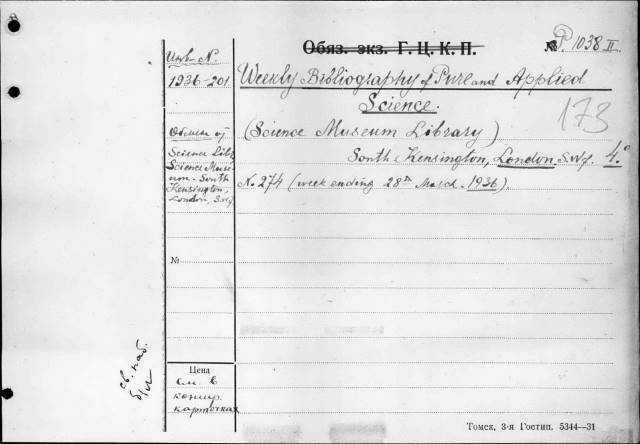 Обяз. экз. Г. Ц. К. П.
№ P. 1038 II
Инв. N.
1936-201
Weekly Bibliography of Pure and Applied
Science.
173
(Science Museum Library)
South Kensington, London. S.W.7. 4.°
N. 274 (week ending 28th March. 1936).
Обмен от
Science Libr.
Science Muse-
um - South
Kensington,
London, S.W.7
№
св. каб.
Цена
см. в
контр.
карточках
Томск, 3-я Гостип. 5344—31